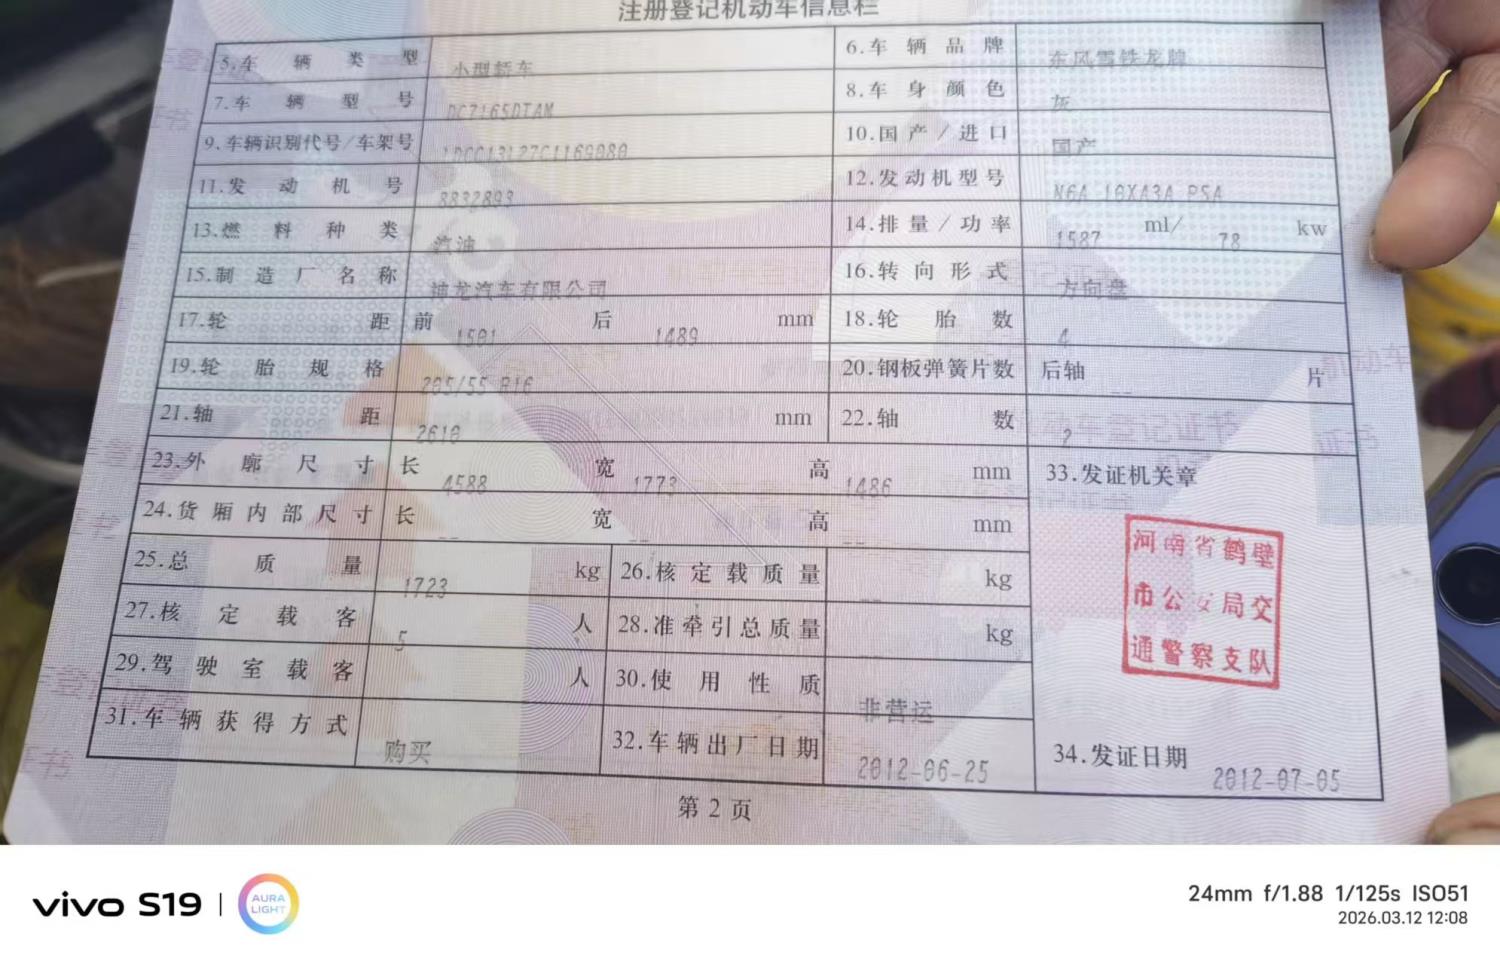 注册登记机动车信息栏
5.车辆类型 小型轿车 6.车辆品牌 东风雪铁龙牌
7.车辆型号 DC7165DTAM 8.车身颜色 灰
9.车辆识别代号/车架号 10.国产/进口 国产
11.发动机号 8832893 12.发动机型号 N6A 10XA3A PSA
13.燃料种类 汽油 14.排量/功率 1587 ml/ 78 kw
15.制造厂名称 神龙汽车有限公司 16.转向形式 方向盘
17.轮距 前 1501 后 1489 mm 18.轮胎数 4
19.轮胎规格 205/55 R16 20.钢板弹簧片数 后轴 -- 片
21.轴距 2610 mm 22.轴数 2
23.外廓尺寸 长 4588 宽 1773 高 1486 mm 33.发证机关章
24.货厢内部尺寸 长 -- 宽 -- 高 -- mm
25.总质量 1723 kg 26.核定载质量 -- kg
27.核定载客 5 人 28.准牵引总质量 kg
29.驾驶室载客 人 30.使用性质 非营运
31.车辆获得方式 购买 32.车辆出厂日期 2012-06-25 34.发证日期 2012-07-05
河南省鹤壁
市公安局交
通警察支队
第2页
vivo S19 | AURA LIGHT
24mm f/1.88 1/125s ISO51
2026.03.12 12:08